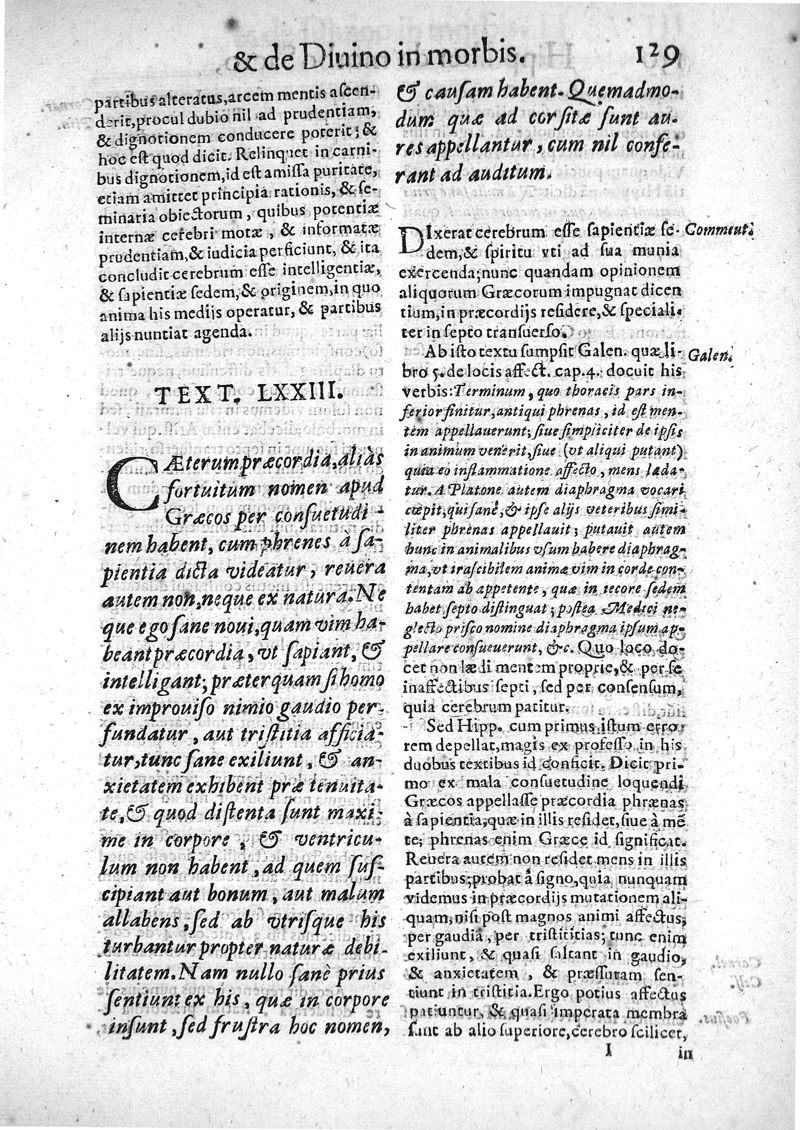 & de Diuino in morbis. 129
partibus alteratus, arcem mentis ascen-
derit, procul dubio nil ad prudentiam,
& dignotionem conducere poterit; &
hoc est quod dicit. Relinquet in carni-
bus dignotionem, id est amissa puritate,
etiam amittet principia rationis, & se-
minaria obiectorum, quibus potentiæ
internæ cerebri motæ, & informatæ
prudentiam, & iudicia perficiunt, & ita
concludit cerebrum esse intelligentiæ,
& sapientiæ sedem, & originem, in quo
anima his medijs operatur, & partibus
alijs nuntiat agenda.
TEXT. LXXIII.
CÆterum præcordia, aliàs
fortuitum nomen apud
Græcos per consuetudi-
nem habent, cum phrenes à sa-
pientia dicta videatur, reuera
autem non, neque ex natura. Ne
que ego sane noui, quam vim ha-
beant præcordia, vt sapiant, &
intelligant; præterquam si homo
ex improuiso nimio gaudio per-
fundatur, aut tristitia afficia-
tur, tunc sane exiliunt, & an-
xietatem exhibent præ tenuita-
te, & quod distenta sunt maxi-
me in corpore, & ventricu-
lum non habent, ad quem sus-
cipiant aut bonum, aut malum
allabens, sed ab vtrisque his
turbantur propter naturæ debi-
litatem. Nam nullo sanè prius
sentiunt ex his, quæ in corpore
insunt, sed frustra hoc nomen,
& causam habent. Quemadmo-
dum quæ ad cor sitæ sunt au-
res appellantur, cum nil confe-
rant ad auditum.
DIxerat cerebrum esse sapientiæ se- Comment.
dem, & spiritu vti ad sua munia
exercenda; nunc quandam opinionem
aliquorum Græcorum impugnat dicen
tium, in præcordijs residere, & speciali-
ter in septo transuerso.
Ab isto textu sumpsit Galen. quæ li- Galen.
bro 5. de locis affect. cap. 4. docuit his
verbis: Terminum, quo thoracis pars in-
ferior finitur, antiqui phrenas, id est men-
tem appellauerunt; siue simpliciter de ipsis
in animum venerit, siue (vt aliqui putant)
quia eo inflammatione affecto, mens læda-
tur. A Platone autem diaphragma vocari
cœpit, qui sanè, & ipse alijs veteribus simi-
liter phrenas appellauit; putauit autem
hunc in animalibus vsum habere diaphrag-
ma, vt irascibilem animæ vim in corde con-
tentam ab appetente, quæ in iecore sedem
habet septo distinguat; postea Medici ne-
glecto prisco nomine diaphragma ipsum ap-
pellare consueuerunt, &c. Quo loco do-
cet non lædi mentem proprie, & per se
in affectibus septi, sed per consensum,
quia cerebrum patitur.
Sed Hipp. cum primus istum erro-
rem depellat, magis ex professo in his
duobus textibus id conficit. Dicit pri-
mo ex mala consuetudine loquendi
Græcos appellasse præcordia phrænas
à sapientia, quæ in illis residet, siue à mē
te; phrenas enim Græce id significat.
Reuera autem non residet mens in illis
partibus; probat à signo, quia nunquam
videmus in præcordijs mutationem ali-
quam, nisi post magnos animi affectus,
per gaudia, per tristitias; tunc enim
exiliunt, & quasi saltant in gaudio,
& anxietatem, & præssuram sen-
tiunt in tristitia. Ergo potius affectus
patiuntur, & quasi imperata membra
sunt ab alio superiore, cerebro scilicet,
I in